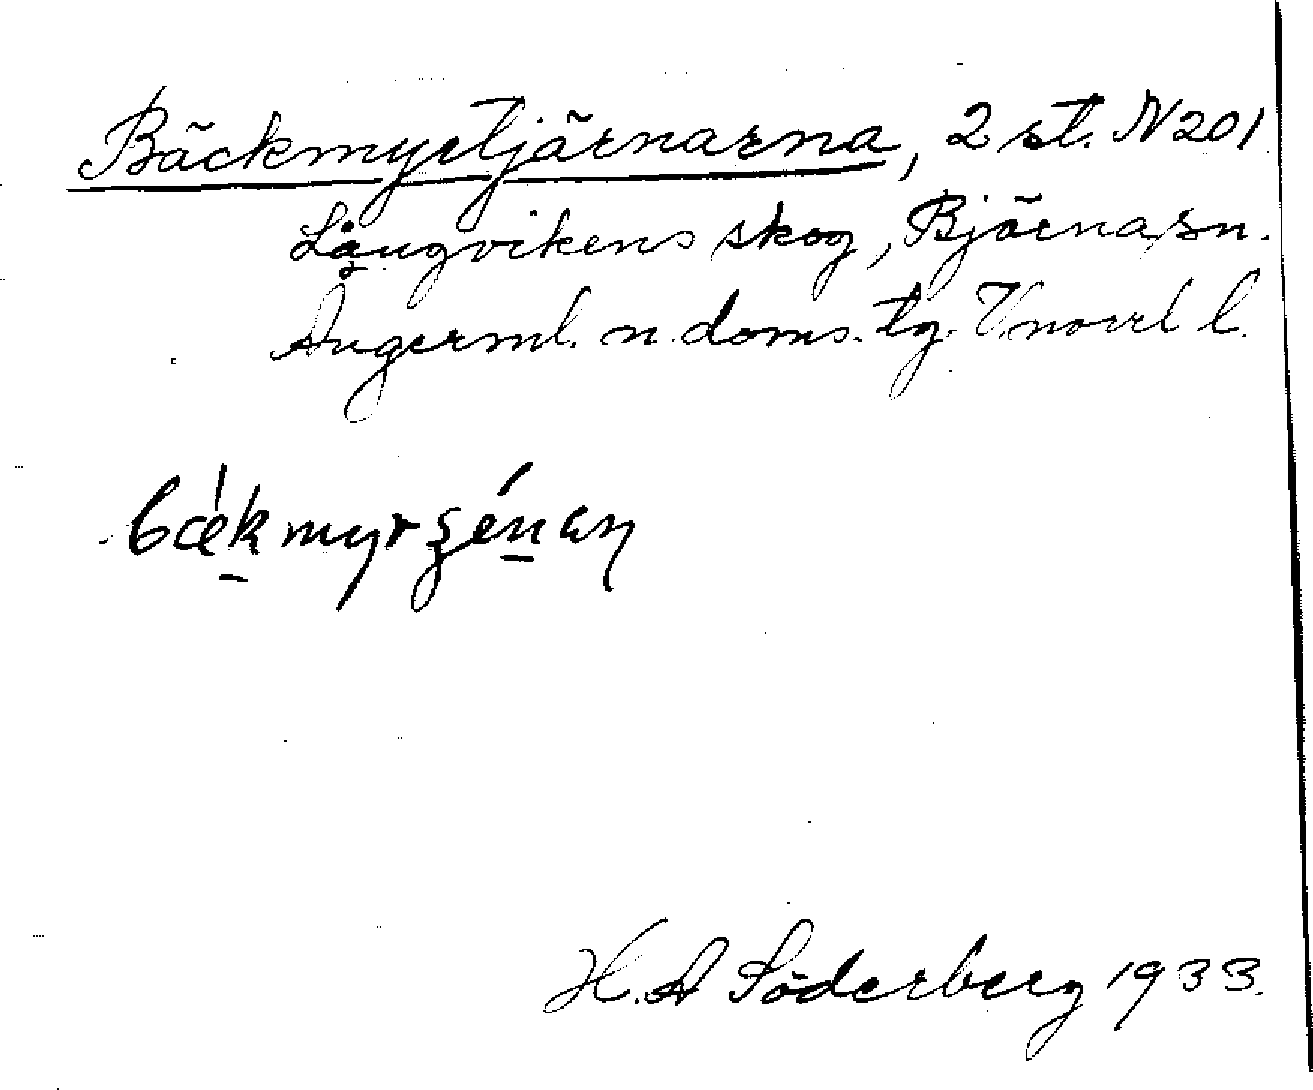 Bäckmyrtjärnarna, 2 st. N 201
Långvikens skog, Björna sn.
Ångerml. n. doms. tg. V.norrl l.
H. A Söderberg 1933.